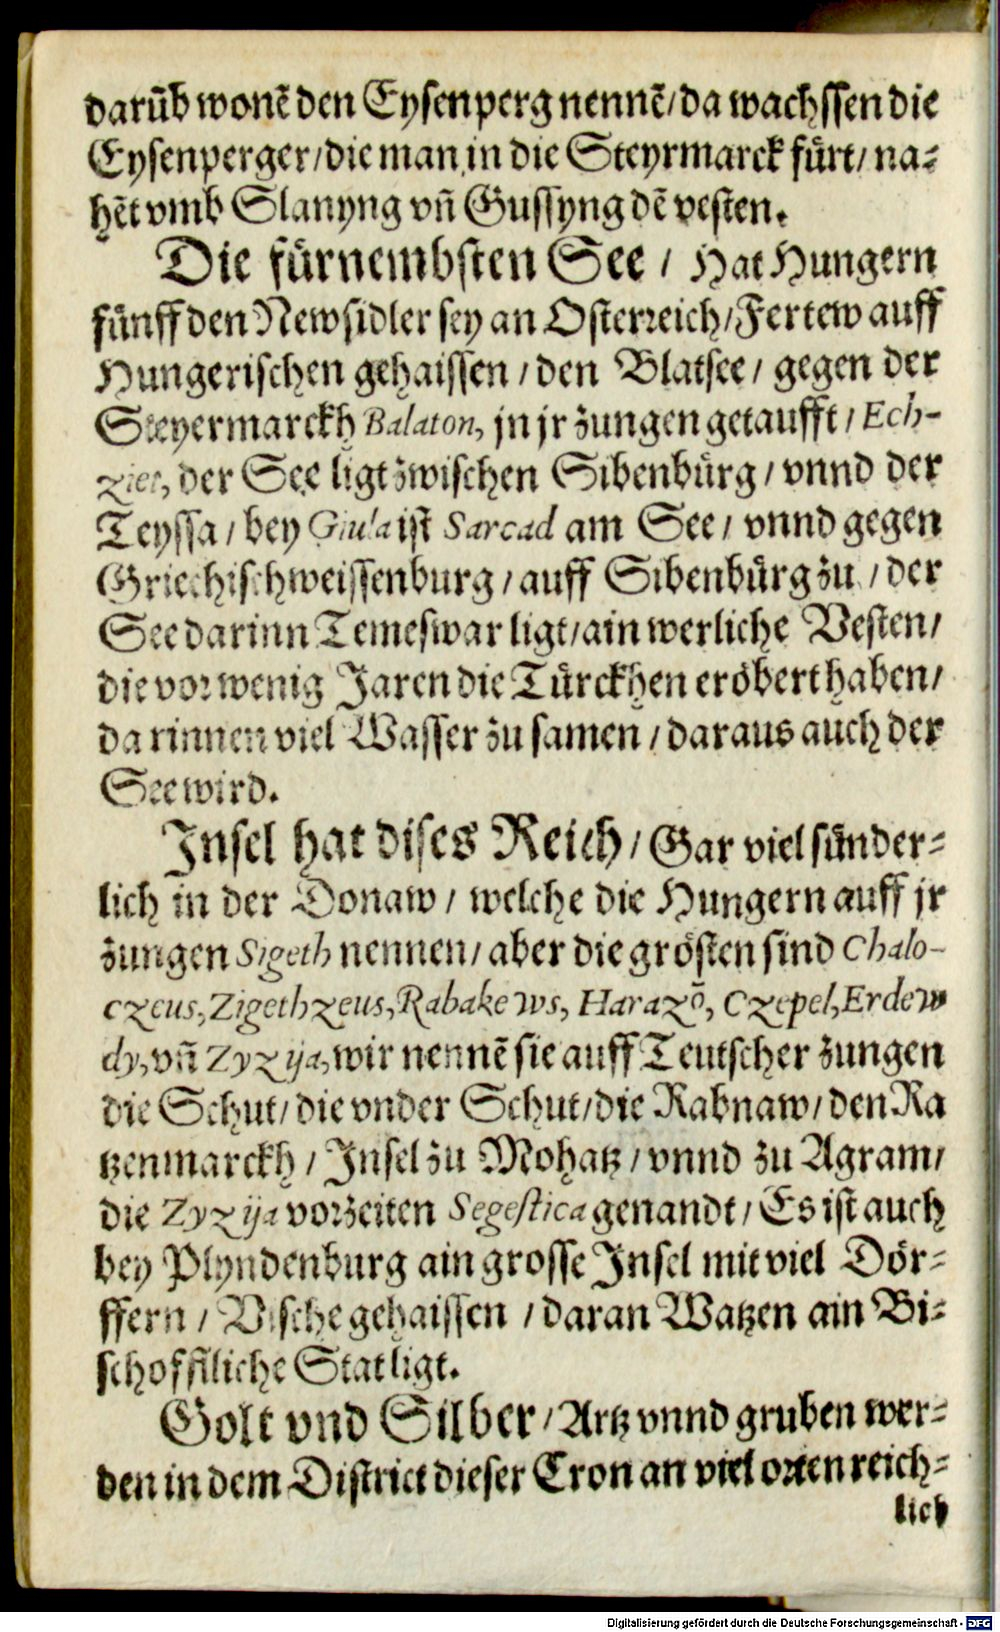 darūb wonē den Eysenperg nennē/ da wachssen die
Eysenperger/ die man in die Steyrmarck fürt/ na⸗
hēt vmb Slanyng vn̄ Gussyng dē vesten.
Die fürnembsten See / Hat Hungern
fünff den Newsidler sey an Osterreich/ Fertew auff
Hungerischen gehaissen / den Blatsee / gegen der
Steyermarckh Balaton, jn jr zungen getaufft / Ech-
ziet, der See ligt zwischen Sibenbürg / vnnd der
Teyssa / bey Giula ist Sarcad am See / vnnd gegen
Griechischweissenburg / auff Sibenbürg zu / der
See darinn Temeswar ligt/ ain werliche Vesten/
die vor wenig Jaren die Türckhen eröbert haben/
da rinnen viel Wasser zu samen / daraus auch der
See wird.
Insel hat dises Reich / Gar viel sünder⸗
lich in der Donaw / welche die Hungern auff jr
zungen Sigeth nennen/ aber die grösten sind Chalo-
czeus, Zigethzeus, Rabakews, Harazō, Czepel, Erdew
dy, vn̄ Zyzija, wir nennē sie auff Teutscher zungen
die Schut/ die vnder Schut/ die Rabnaw/ den Ra
tzenmarckh / Insel zu Mohatz / vnnd zu Agram/
die Zyzija vorzeiten Segestica genandt / Es ist auch
bey Plyndenburg ain grosse Insel mit viel Dör⸗
ffern / Vische gehaissen / daran Watzen ain Bi⸗
schoffliche Stat ligt.
Golt vnd Silber / Artz vnnd gruben wer⸗
den in dem District dieser Cron an viel orten reich⸗
lich
Digitalisierung gefördert durch die Deutsche Forschungsgemeinschaft - DFG